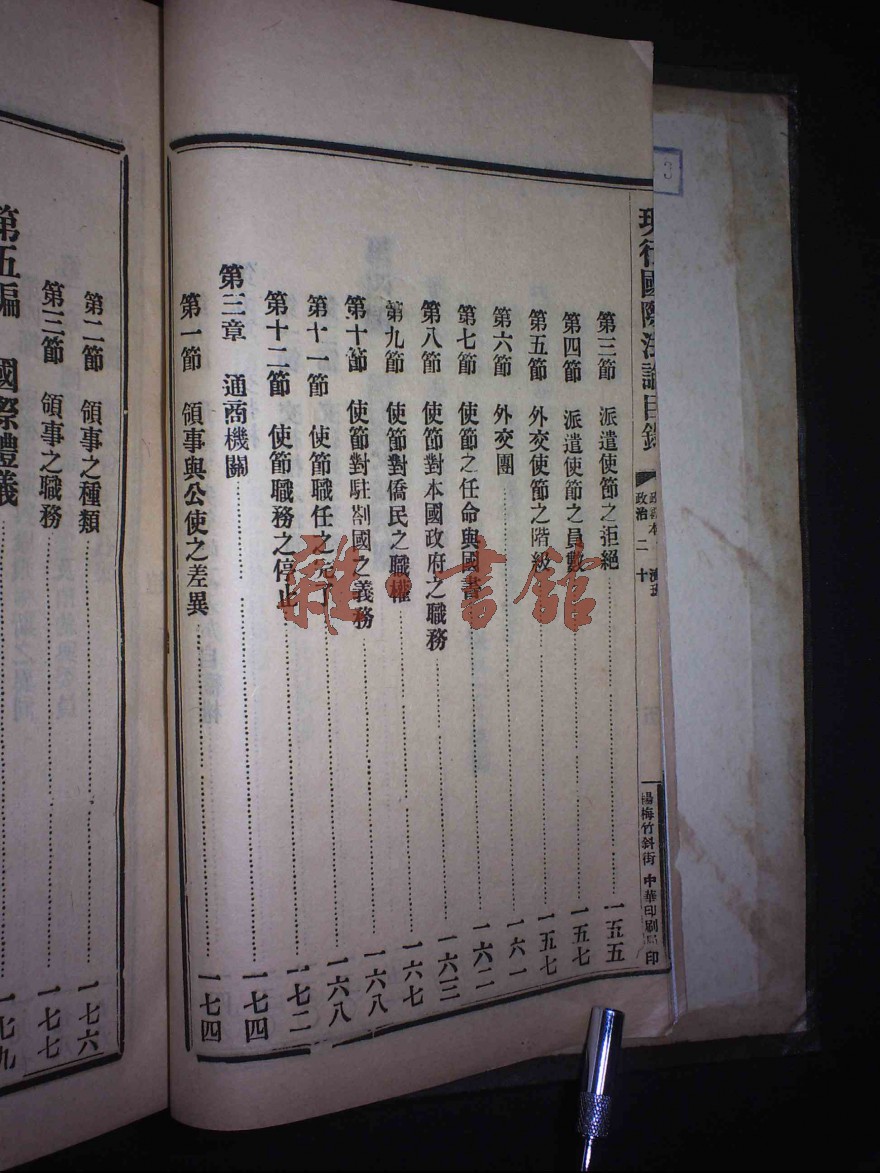 現行國際法論目錄
政治二 十
楊梅竹斜街 中華印刷局印
第三節 派遣使節之拒絕 一五五
第四節 派遣使節之員數 一五七
第五節 外交使節之階級 一五七
第六節 外交團 一六一
第七節 使節之任命與國書 一六二
第八節 使節對本國政府之職務 一六三
第九節 使節對僑民之職權 一六七
第十節 使節對駐劄國之義務 一六八
第十一節 使節職任之完了 一六八
第十二節 使節職務之停止 一七二
第三章 通商機關 一七四
第一節 領事與公使之差異 一七四
第二節 領事之種類 一七六
第三節 領事之職務 一七七
第五編 國際禮儀 一七九
雜·書館
3